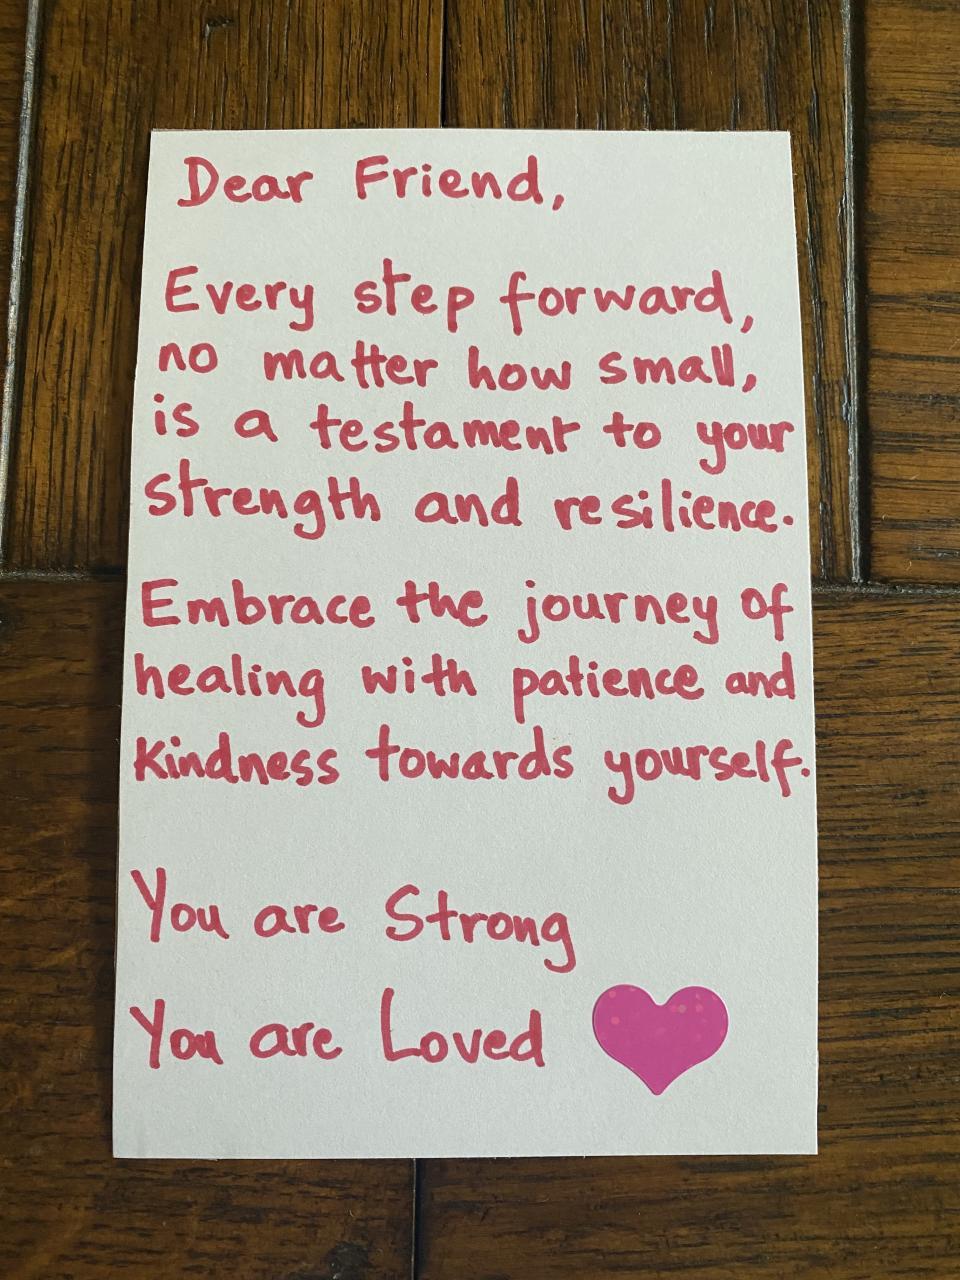 Dear Friend,
Every step forward,
no matter how small,
is a testament to your
strength and resilience.
Embrace the journey of
healing with patience and
kindness towards yourself.
You are Strong
You are Loved